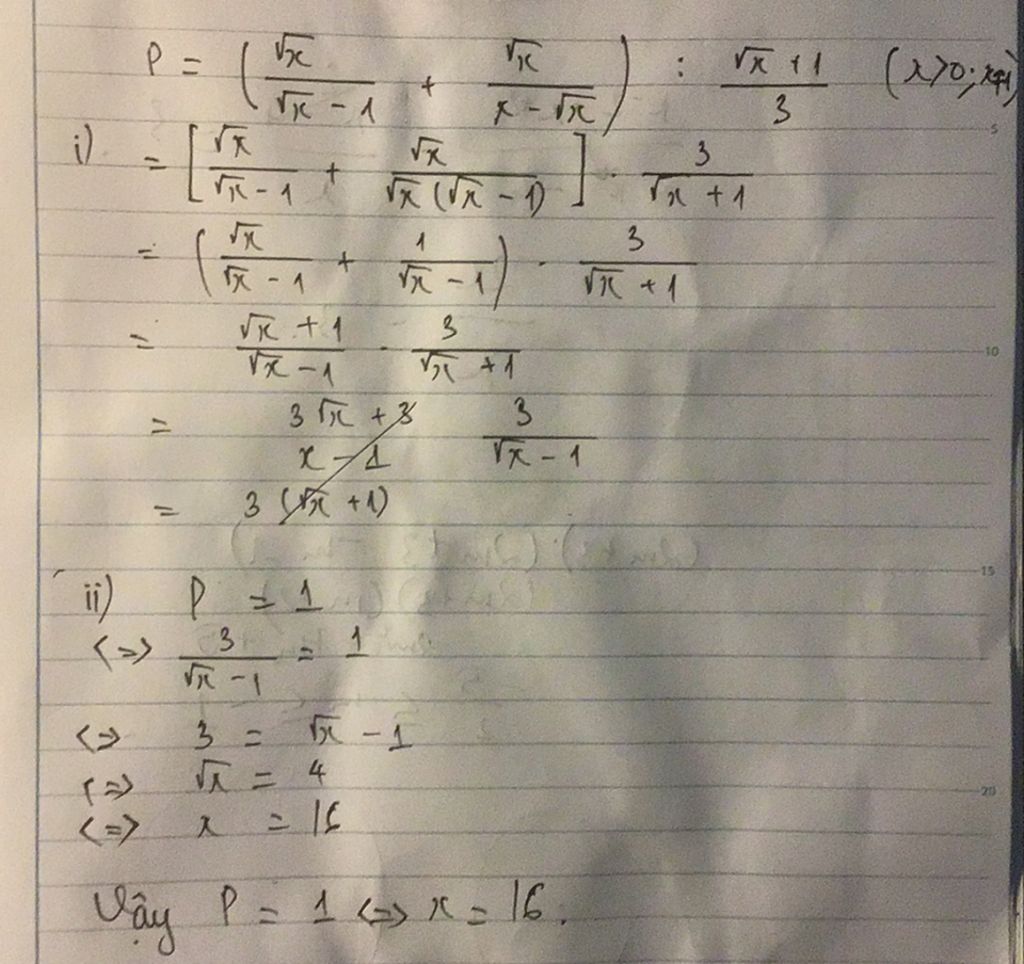 P = (√x/(√x - 1) + √x/(x - √x)) : (√x + 1)/3 (x>0; x≠1)
i) = [√x/(√x - 1) + √x/(√x(√x - 1))] . 3/(√x + 1)
= (√x/(√x - 1) + 1/(√x - 1)) . 3/(√x + 1)
= (√x + 1)/(√x - 1) . 3/(√x + 1)
= (3√x + 3)/(x - 1) 3/(√x - 1)
= 3(√x + 1)
ii) P = 1
<=> 3/(√x - 1) = 1
<=> 3 = √x - 1
<=> √x = 4
<=> x = 16
Vậy P = 1 <=> x = 16.
5
10
15
20